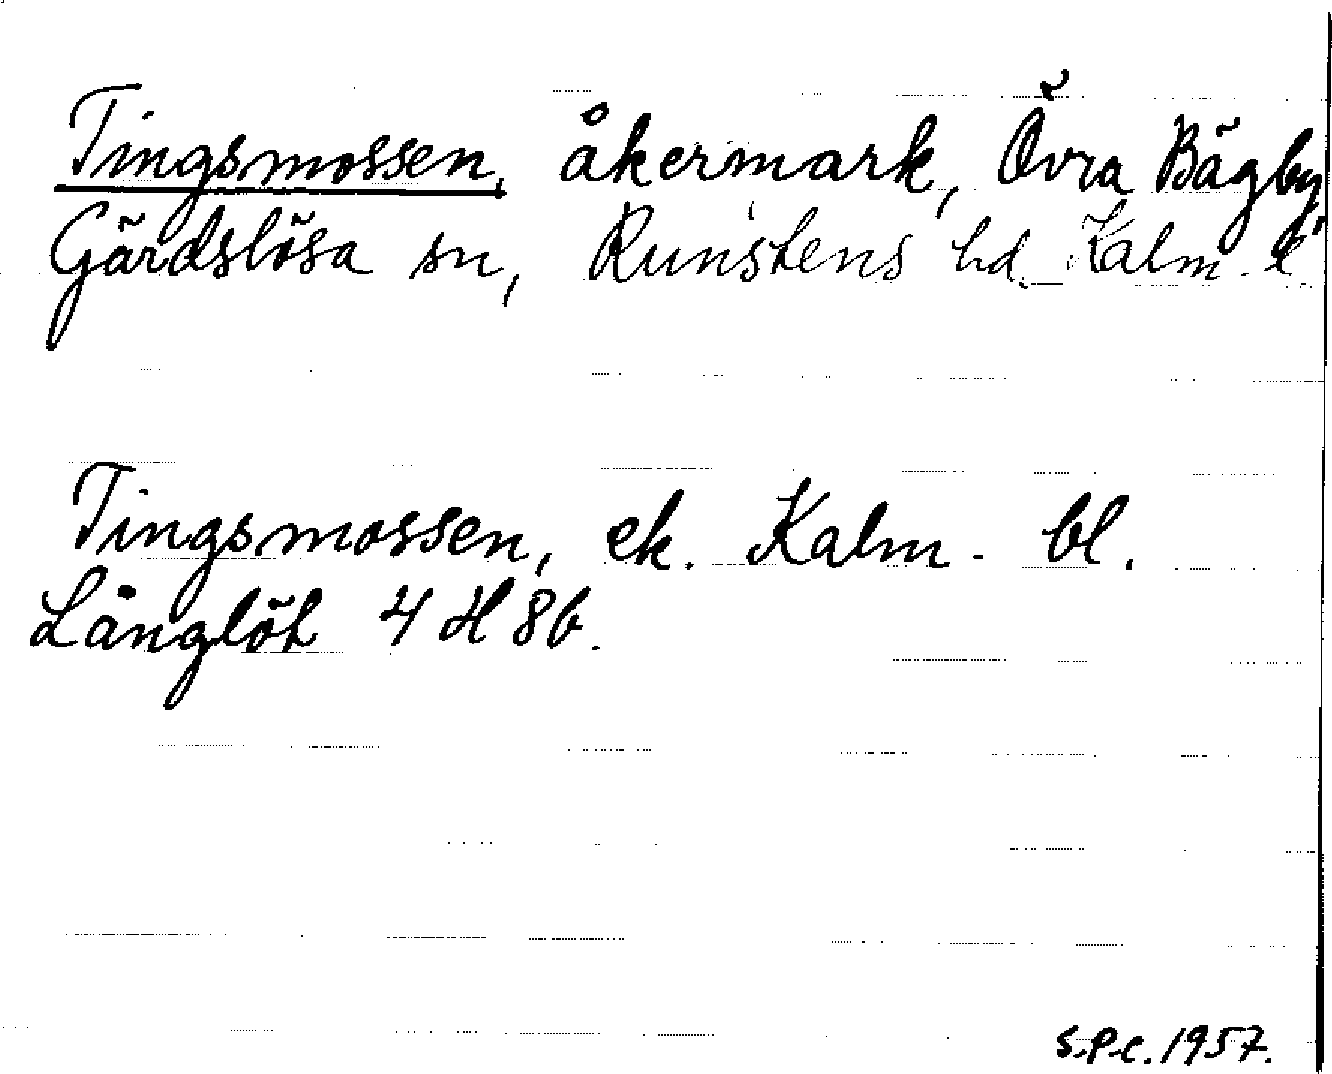 Tingsmossen, åkermark, Övra Bägby,
Gärdslösa sn, Runstens hd. Kalm. l.
Tingsmossen, ek. Kalm. bl.
Långlöt 4 H 8b.
S.P.C. 1957.